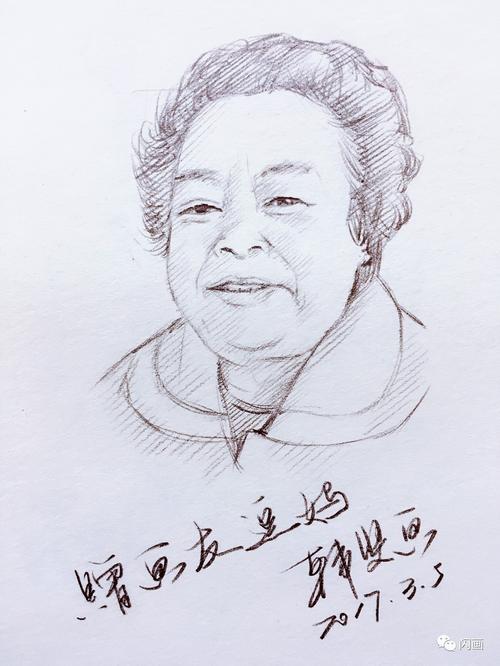 赠画友 妈
韩坚画
2017.3.5
闪画